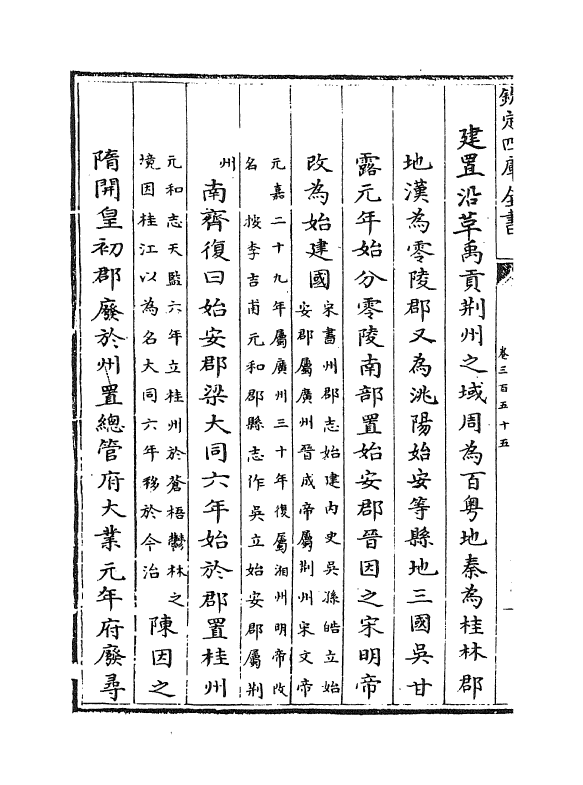 欽定四庫全書
卷三百五十五
建置沿革禹貢荆州之域周為百粤地秦為桂林郡
地漢為零陵郡又為洮陽始安等縣地三國吳甘
露元年始分零陵南部置始安郡晉因之宋明帝
改為始建國
宋書州郡志始建内史吳孫皓立始
安郡屬廣州晉成帝屬荆州宋文帝
元嘉二十九年屬廣州三十年復屬湘州明帝改
名 按李吉甫元和郡縣志作吳立始安郡屬荆
州
南齊復曰始安郡梁大同六年始於郡置桂州
元和志天監六年立桂州於蒼梧鬱林之
境因桂江以為名大同六年移於今治
陳因之
隋開皇初郡廢於州置總管府大業元年府廢尋